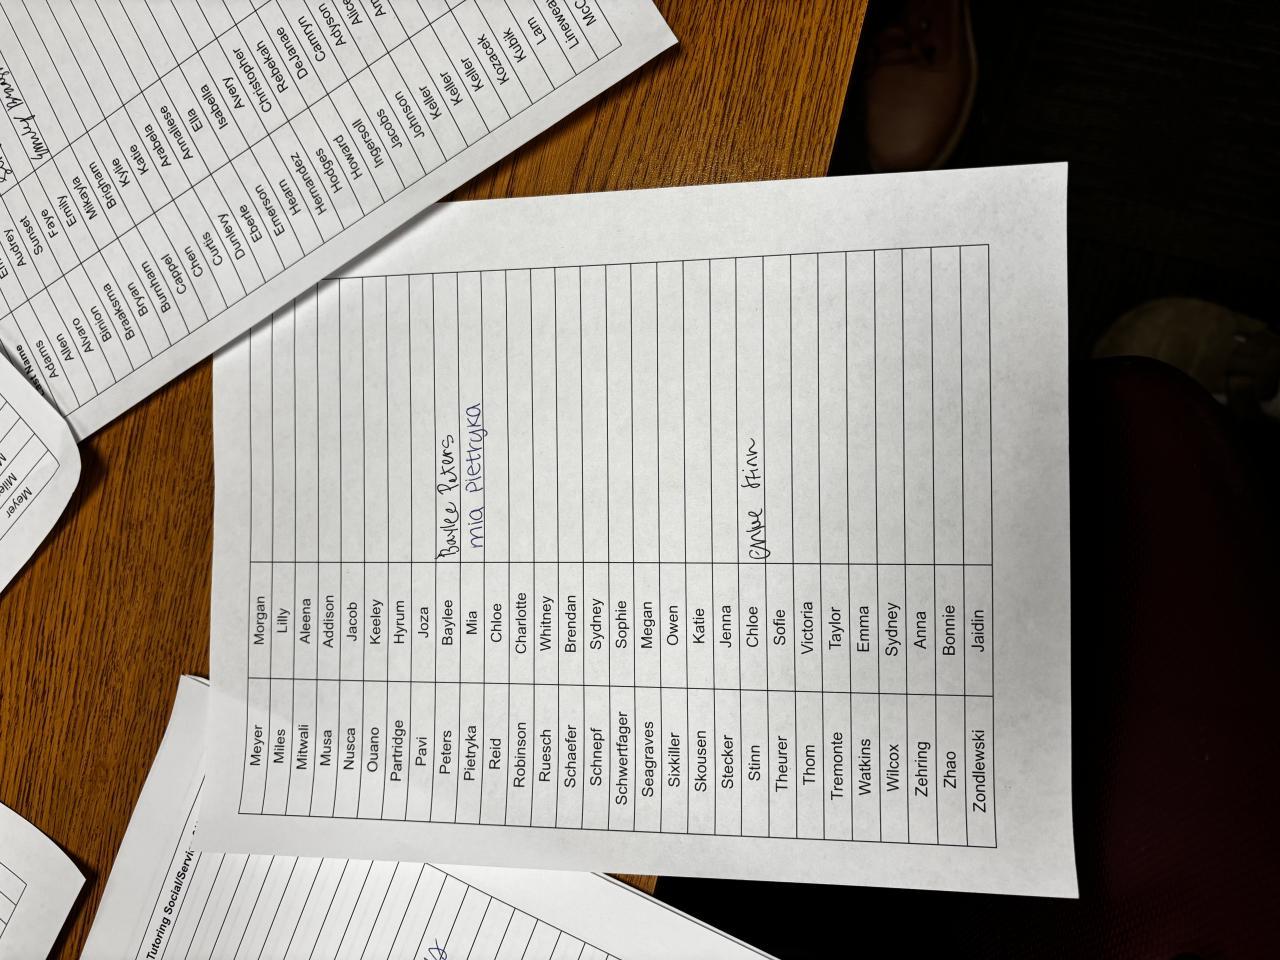 Meyer Morgan
Miles Lilly
Mitwali Aleena
Musa Addison
Nusca Jacob
Ouano Keeley
Partridge Hyrum
Pavi Joza
Peters Baylee Baylee Peters
Pietryka Mia mia Pietryka
Reid Chloe
Robinson Charlotte
Ruesch Whitney
Schaefer Brendan
Schnepf Sydney
Schwertfager Sophie
Seagraves Megan
Sixkiller Owen
Skousen Katie
Stecker Jenna
Stinn Chloe Chloe Stinn
Theurer Sofie
Thom Victoria
Tremonte Taylor
Watkins Emma
Wilcox Sydney
Zehring Anna
Zhao Bonnie
Zondlewski Jaidin
Name
Adams
Allen Audrey
Alvaro Sunset
Binion Faye
Braaksma Emily
Bryan Mikayla
Burnham Brigham
Cappel Kylie
Chen Katie
Curtis Arabela
Dunlevy Annaliese
Eberle Ella
Emerson Isabella
Hearn Avery
Hernandez Christopher
Hodges Rebekah
Howard DeJanae
Ingersoll Camryn
Jacobs Adyson
Johnson
Keller
Keller
Keller
Kozacek
Kubik
Lam
Meyer
Tutoring